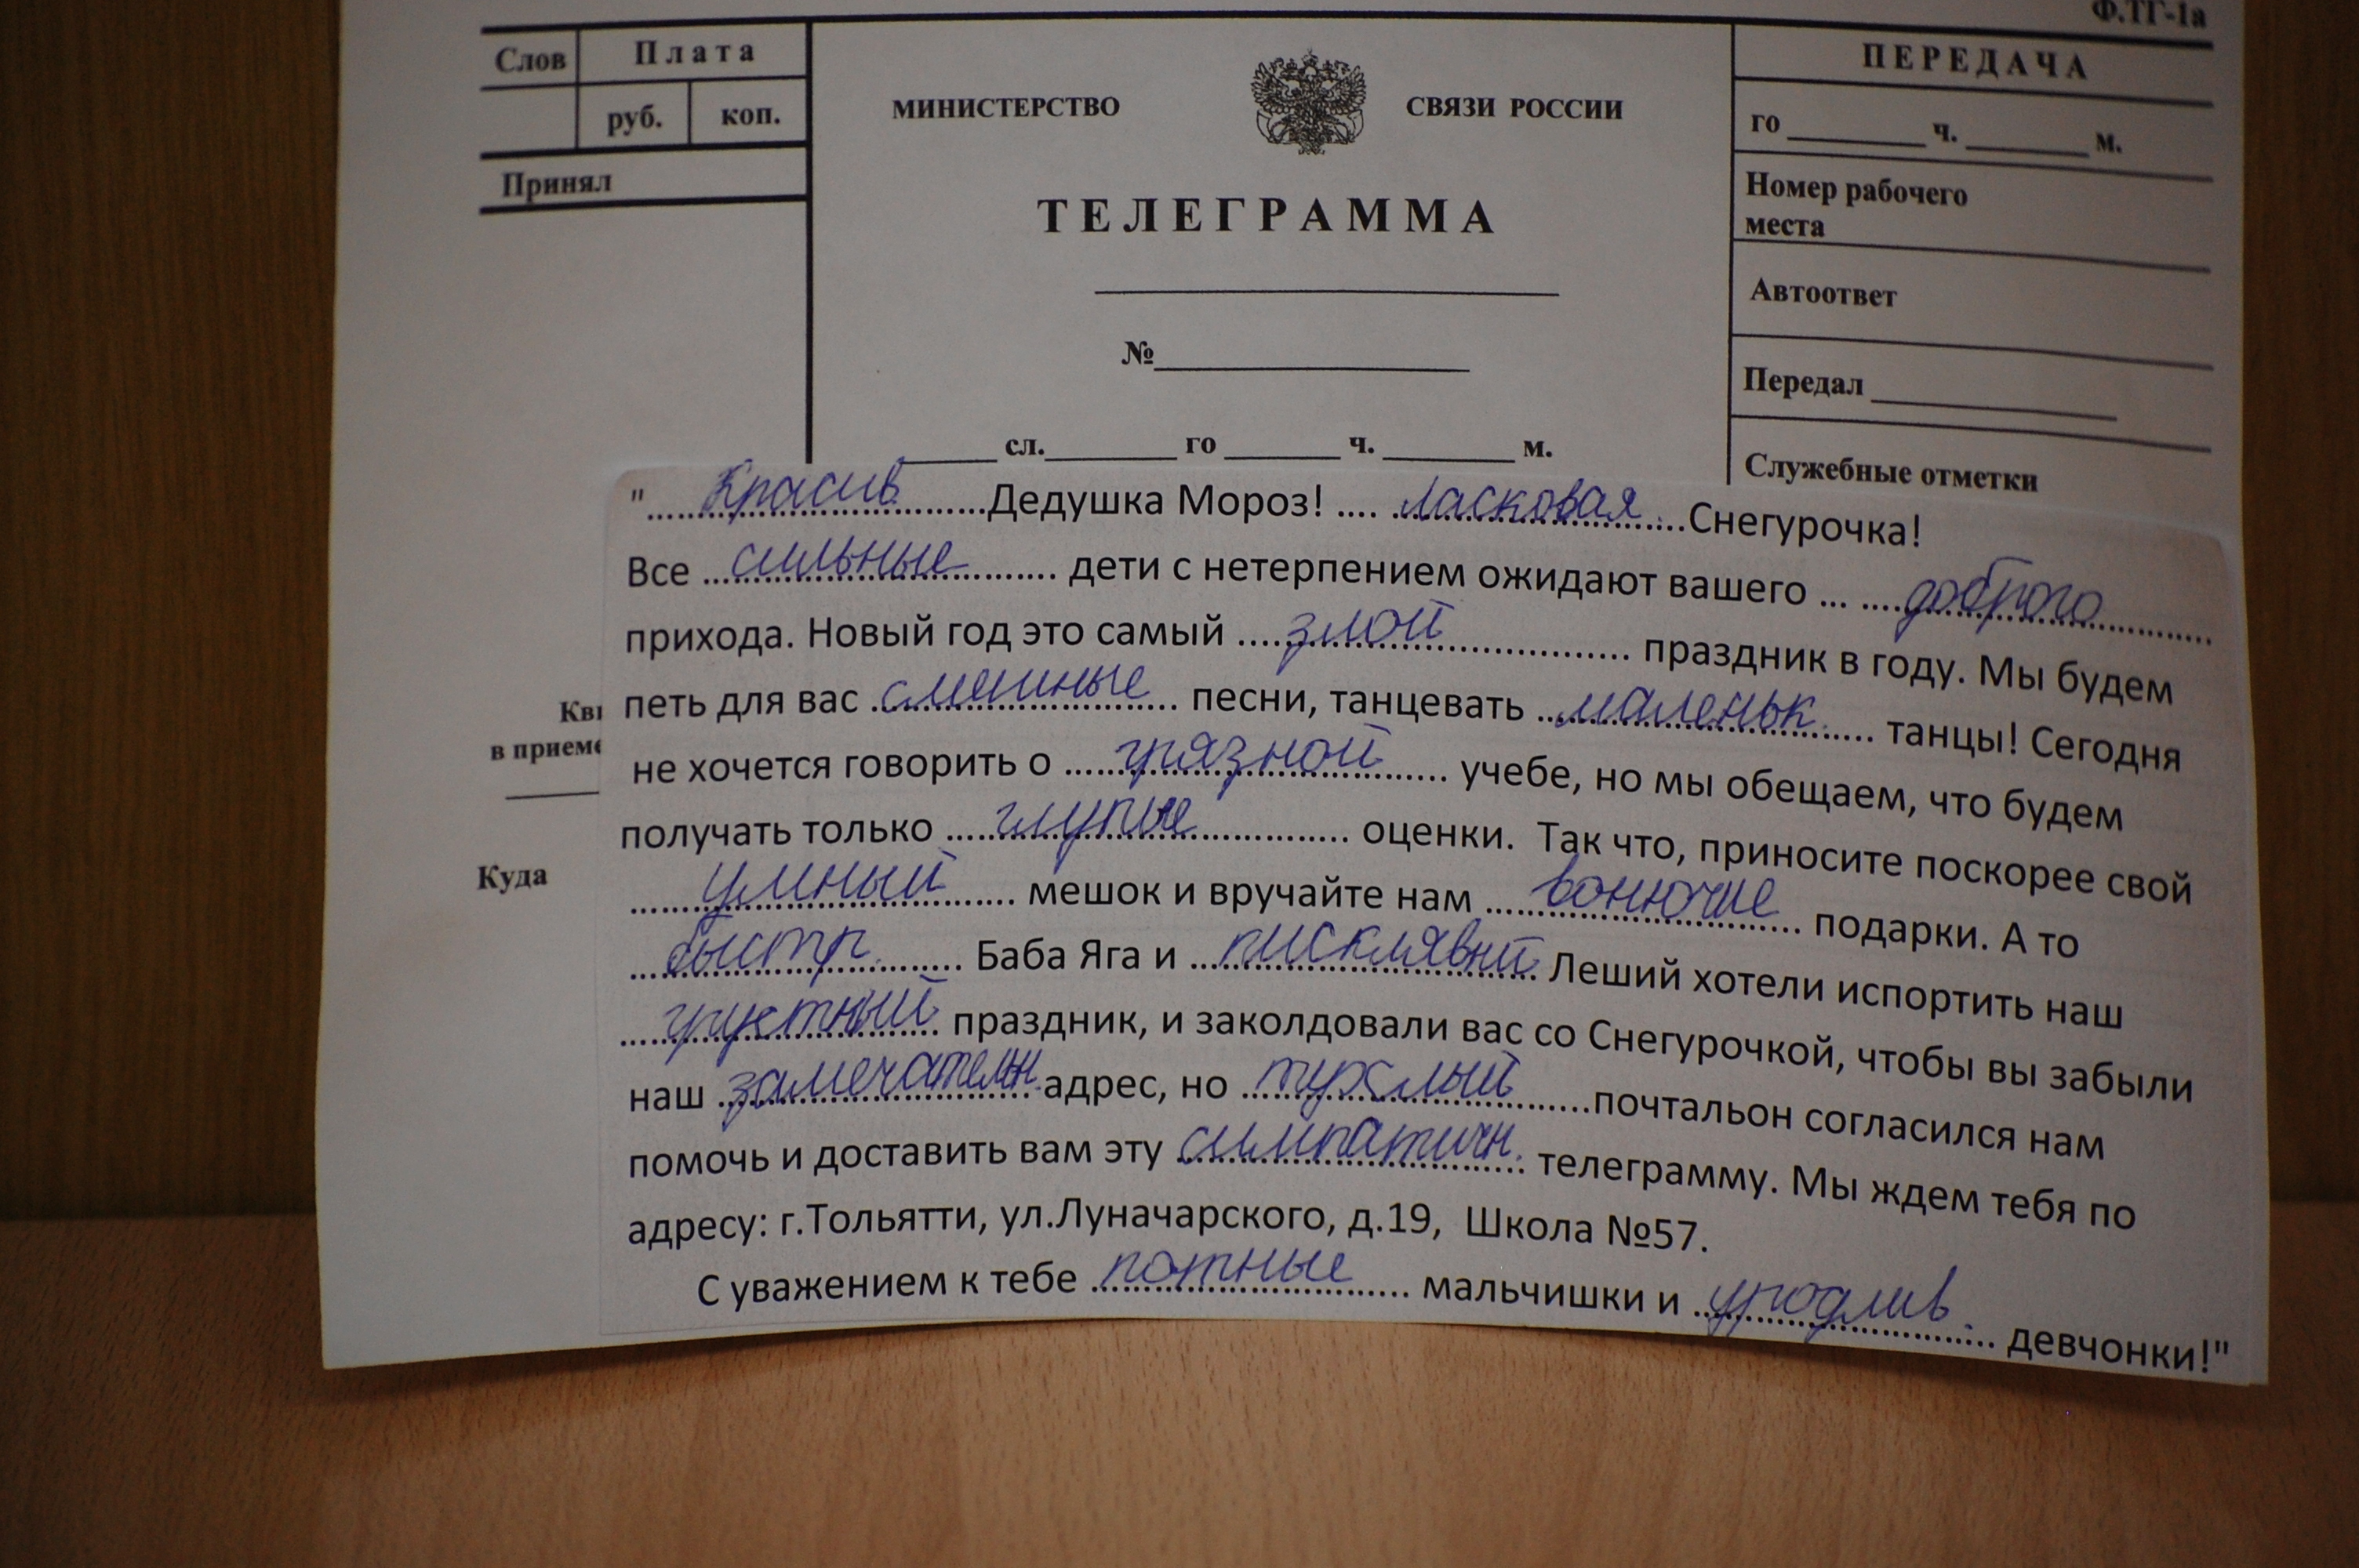 Ф.ТГ-1а
Слов Плата
руб. коп.
Принял
МИНИСТЕРСТВО СВЯЗИ РОССИИ
ТЕЛЕГРАММА
№
сл. го ч. м.
ПЕРЕДАЧА
го ч. м.
Номер рабочего
места
Автоответ
Передал
Служебные отметки
Кви
в приеме
Куда
"Красив Дедушка Мороз! ласковая Снегурочка!
Все сильные дети с нетерпением ожидают вашего доброго
прихода. Новый год это самый злой праздник в году. Мы будем
петь для вас смешные песни, танцевать маленьк. танцы! Сегодня
не хочется говорить о грязной учебе, но мы обещаем, что будем
получать только глупые оценки. Так что, приносите поскорее свой
умный мешок и вручайте нам вонючие подарки. А то
быстр. Баба Яга и писклявый Леший хотели испортить наш
грустный праздник, и заколдовали вас со Снегурочкой, чтобы вы забыли
наш замечательн. адрес, но почтальон согласился нам
помочь и доставить вам эту симпатичн. телеграмму. Мы ждем тебя по
адресу: г.Тольятти, ул.Луначарского, д.19, Школа №57.
С уважением к тебе потные мальчишки и уродлив. девчонки!"